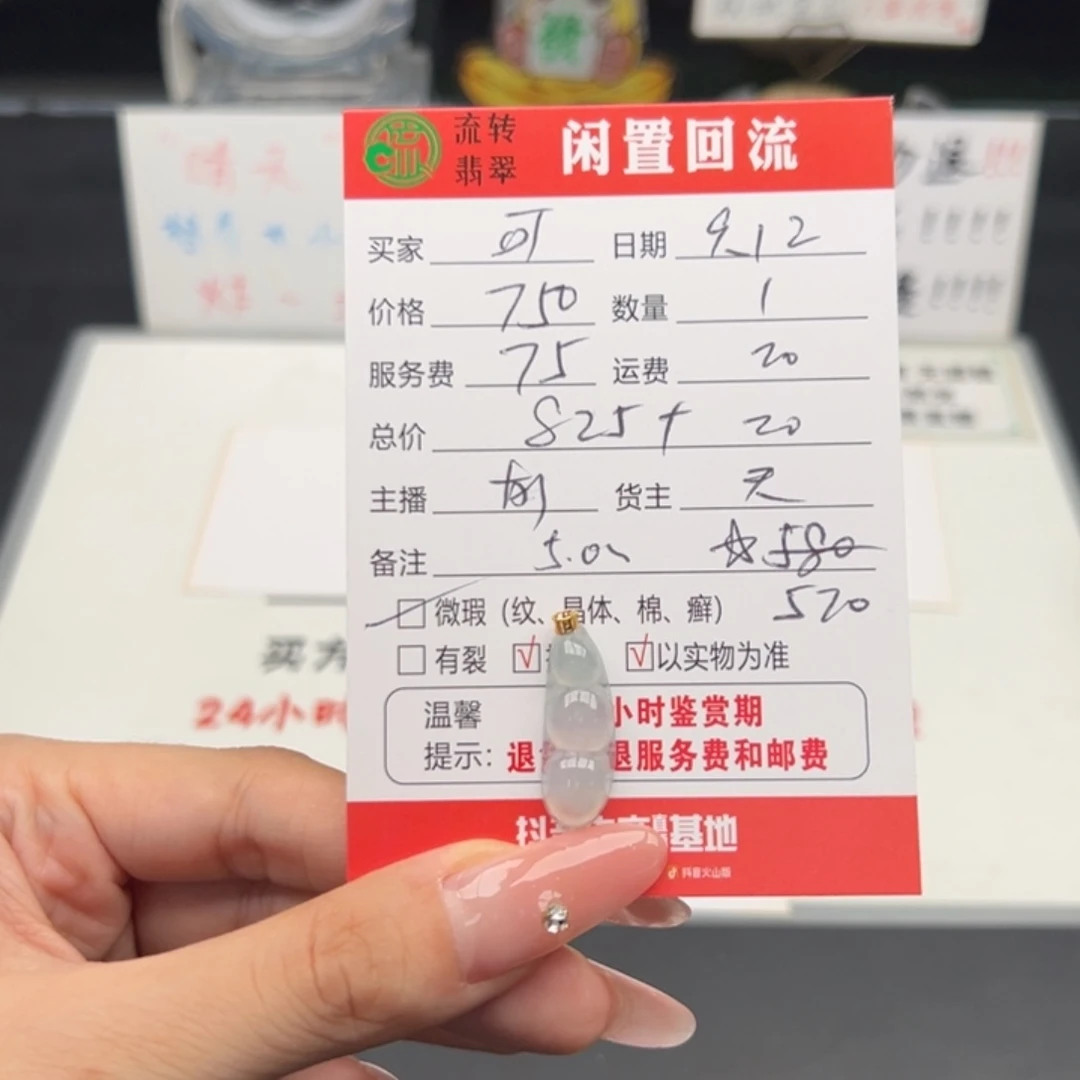 流转
翡翠
闲置回流
买家 可 日期 9.12
价格 750 数量 1
服务费 75 运费 20
总价 825+ 20
主播 货主 天
备注 5.0 ☆ 580
520
微瑕（纹、晶体、棉、癣）
有裂 √ √ 以实物为准
温馨 小时鉴赏期
提示： 退 退服务费和邮费
基地
抖音火山版
买方
24小时